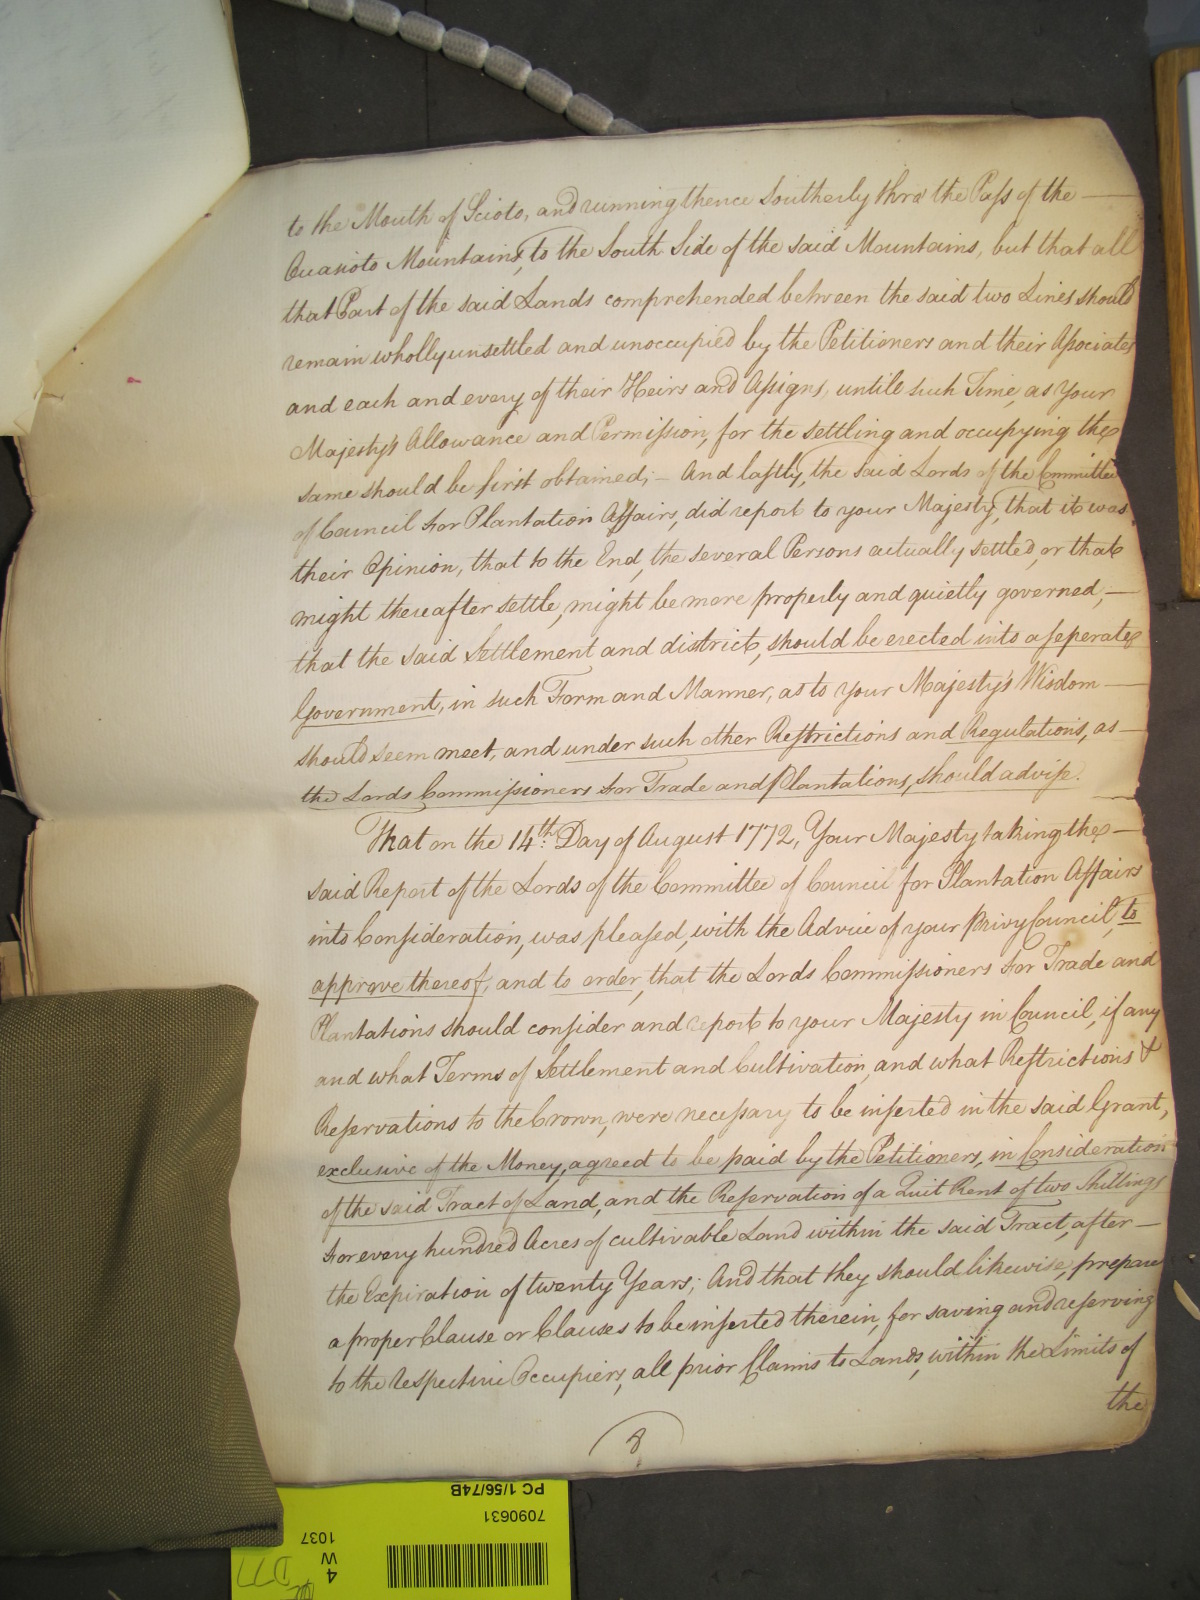 to the Mouth of Scioto, and running thence Southerly thro' the Pass of the —
Ouasioto Mountains, to the South Side of the said Mountains, but that all
that Part of the said Lands comprehended between the said two Lines should
remain wholly unsettled and unoccupied by the Petitioners and their Associates
and each and every of their Heirs and Assigns, untill such Time, as Your
Majesty's Allowance and Permission, for the settling and occupying the
same should be first obtained; — And lastly, the said Lords of the Committee
of Council for Plantation Affairs, did report to your Majesty, that it was
their Opinion, that to the End, the several Persons actually settled, or that
might thereafter settle, might be more properly and quietly governed, —
that the said Settlement and district, should be erected into a seperate
Government, in such Form and Manner, as to your Majesty's Wisdom —
should seem meet, and under such other Restrictions and Regulations, as —
the Lords Commissioners for Trade and Plantations, should advise.
That on the 14th. Day of August 1772, Your Majesty taking the —
said Report of the Lords of the Committee of Council for Plantation Affairs
into Consideration, was pleased, with the Advice of your Privy Council, to
approve thereof, and to order, that the Lords Commissioners for Trade and
Plantations should consider and report to your Majesty in Council, if any
and what Terms of Settlement and Cultivation, and what Restrictions &
Reservations to the Crown, were necessary to be inserted in the said Grant,
exclusive of the Money, agreed to be paid by the Petitioners, in Consideration
of the said Tract of Land, and the Reservation of a Quit Rent of two Shillings
for every hundred Acres of cultivable Land within the said Tract, after —
the Expiration of twenty Years; And that they should likewise, prepare
a proper Clause or Clauses to be inserted therein, for saving and reserving
to the respective Occupiers, all prior Claims to Lands, within the Limits of
the
8
PC 1/56/74B
7090631
1037
W
4
D77